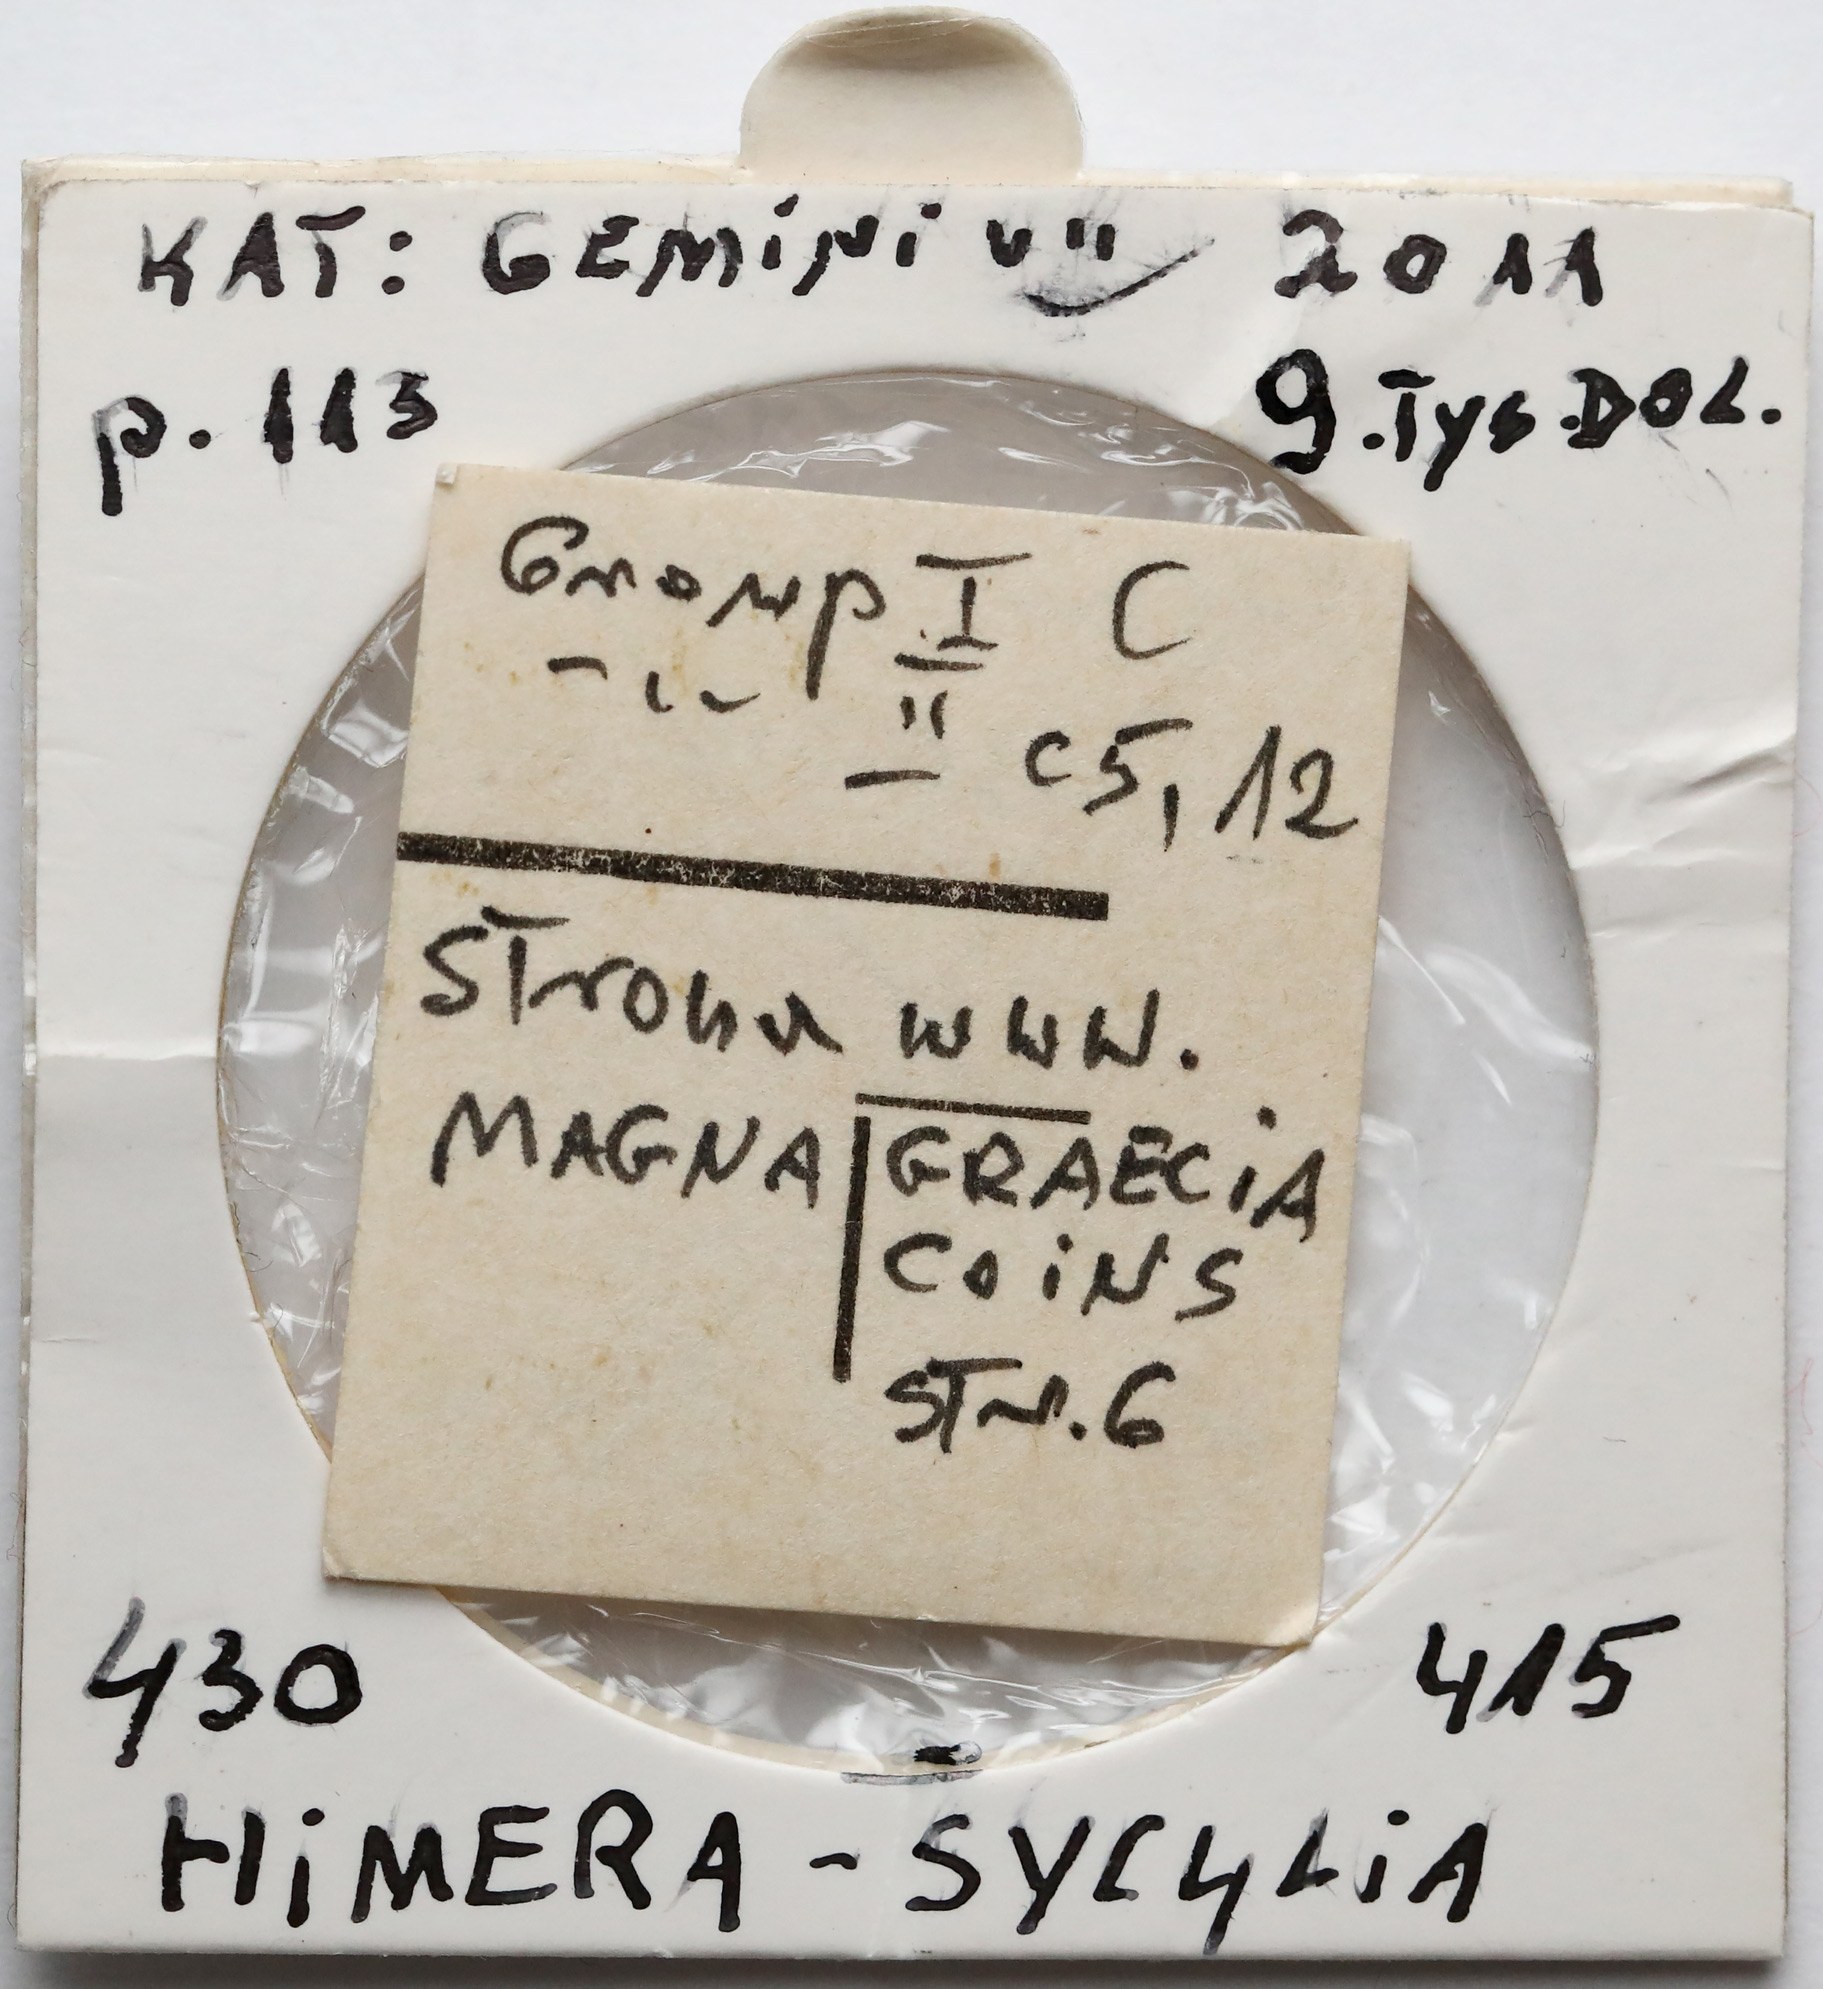 KAT: GEMiNi VII 2011
p. 113 9.Tys.DOL.
Group I C
-"- II C5,12
STrona WWW.
MAGNA GRAECiA
COiNS
STr.6
430 415
HiMERA - SYCYLiA